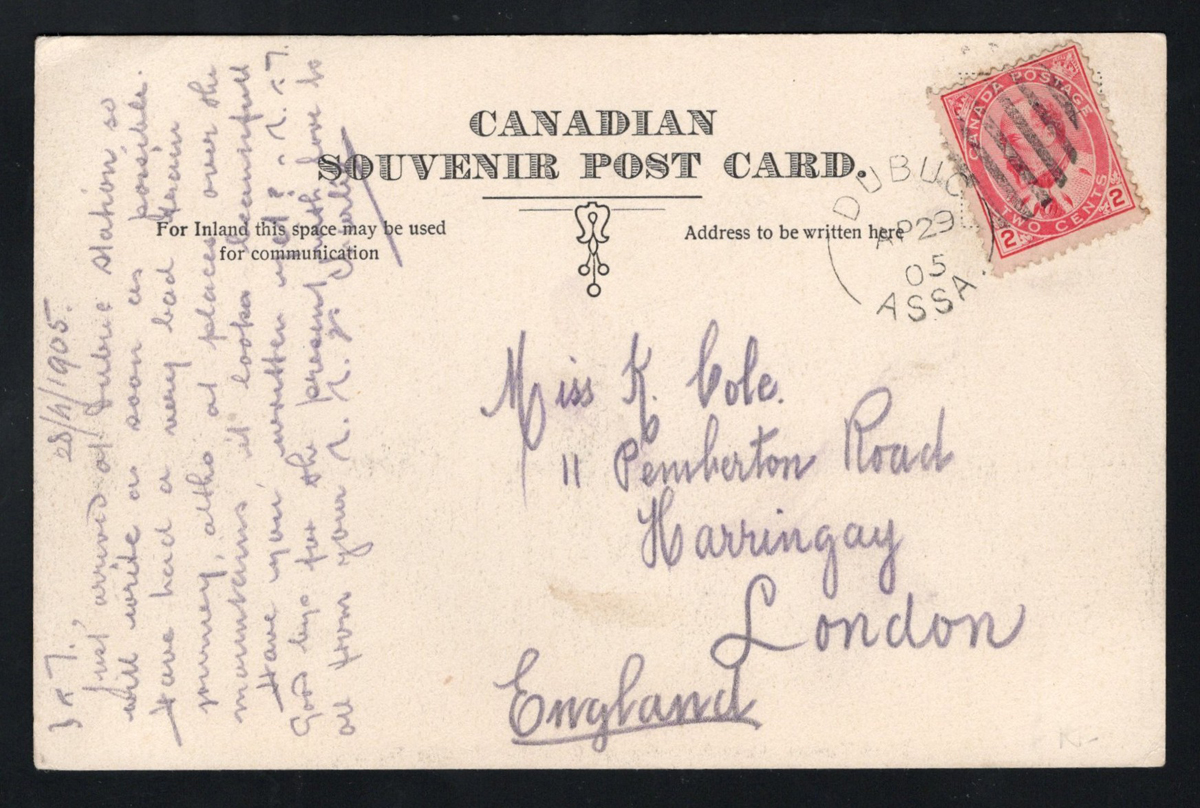 CANADIAN
SOUVENIR POST CARD.
For Inland this space may be used
for communication
Address to be written here
CANADA POSTAGE
TWO CENTS
2 2
DUBUC
AP 29
05
ASSA.
Miss K. Cole.
11 Pemberton Road
Harringay
London
England
28/4/1905.
Just arrived at Dubuc station so
will write as soon as possible.
Have had a very bad train
journey, altho at places over the
mountains it looks beautiful
Have you written yet?
Good bye for the present with love to
all from your